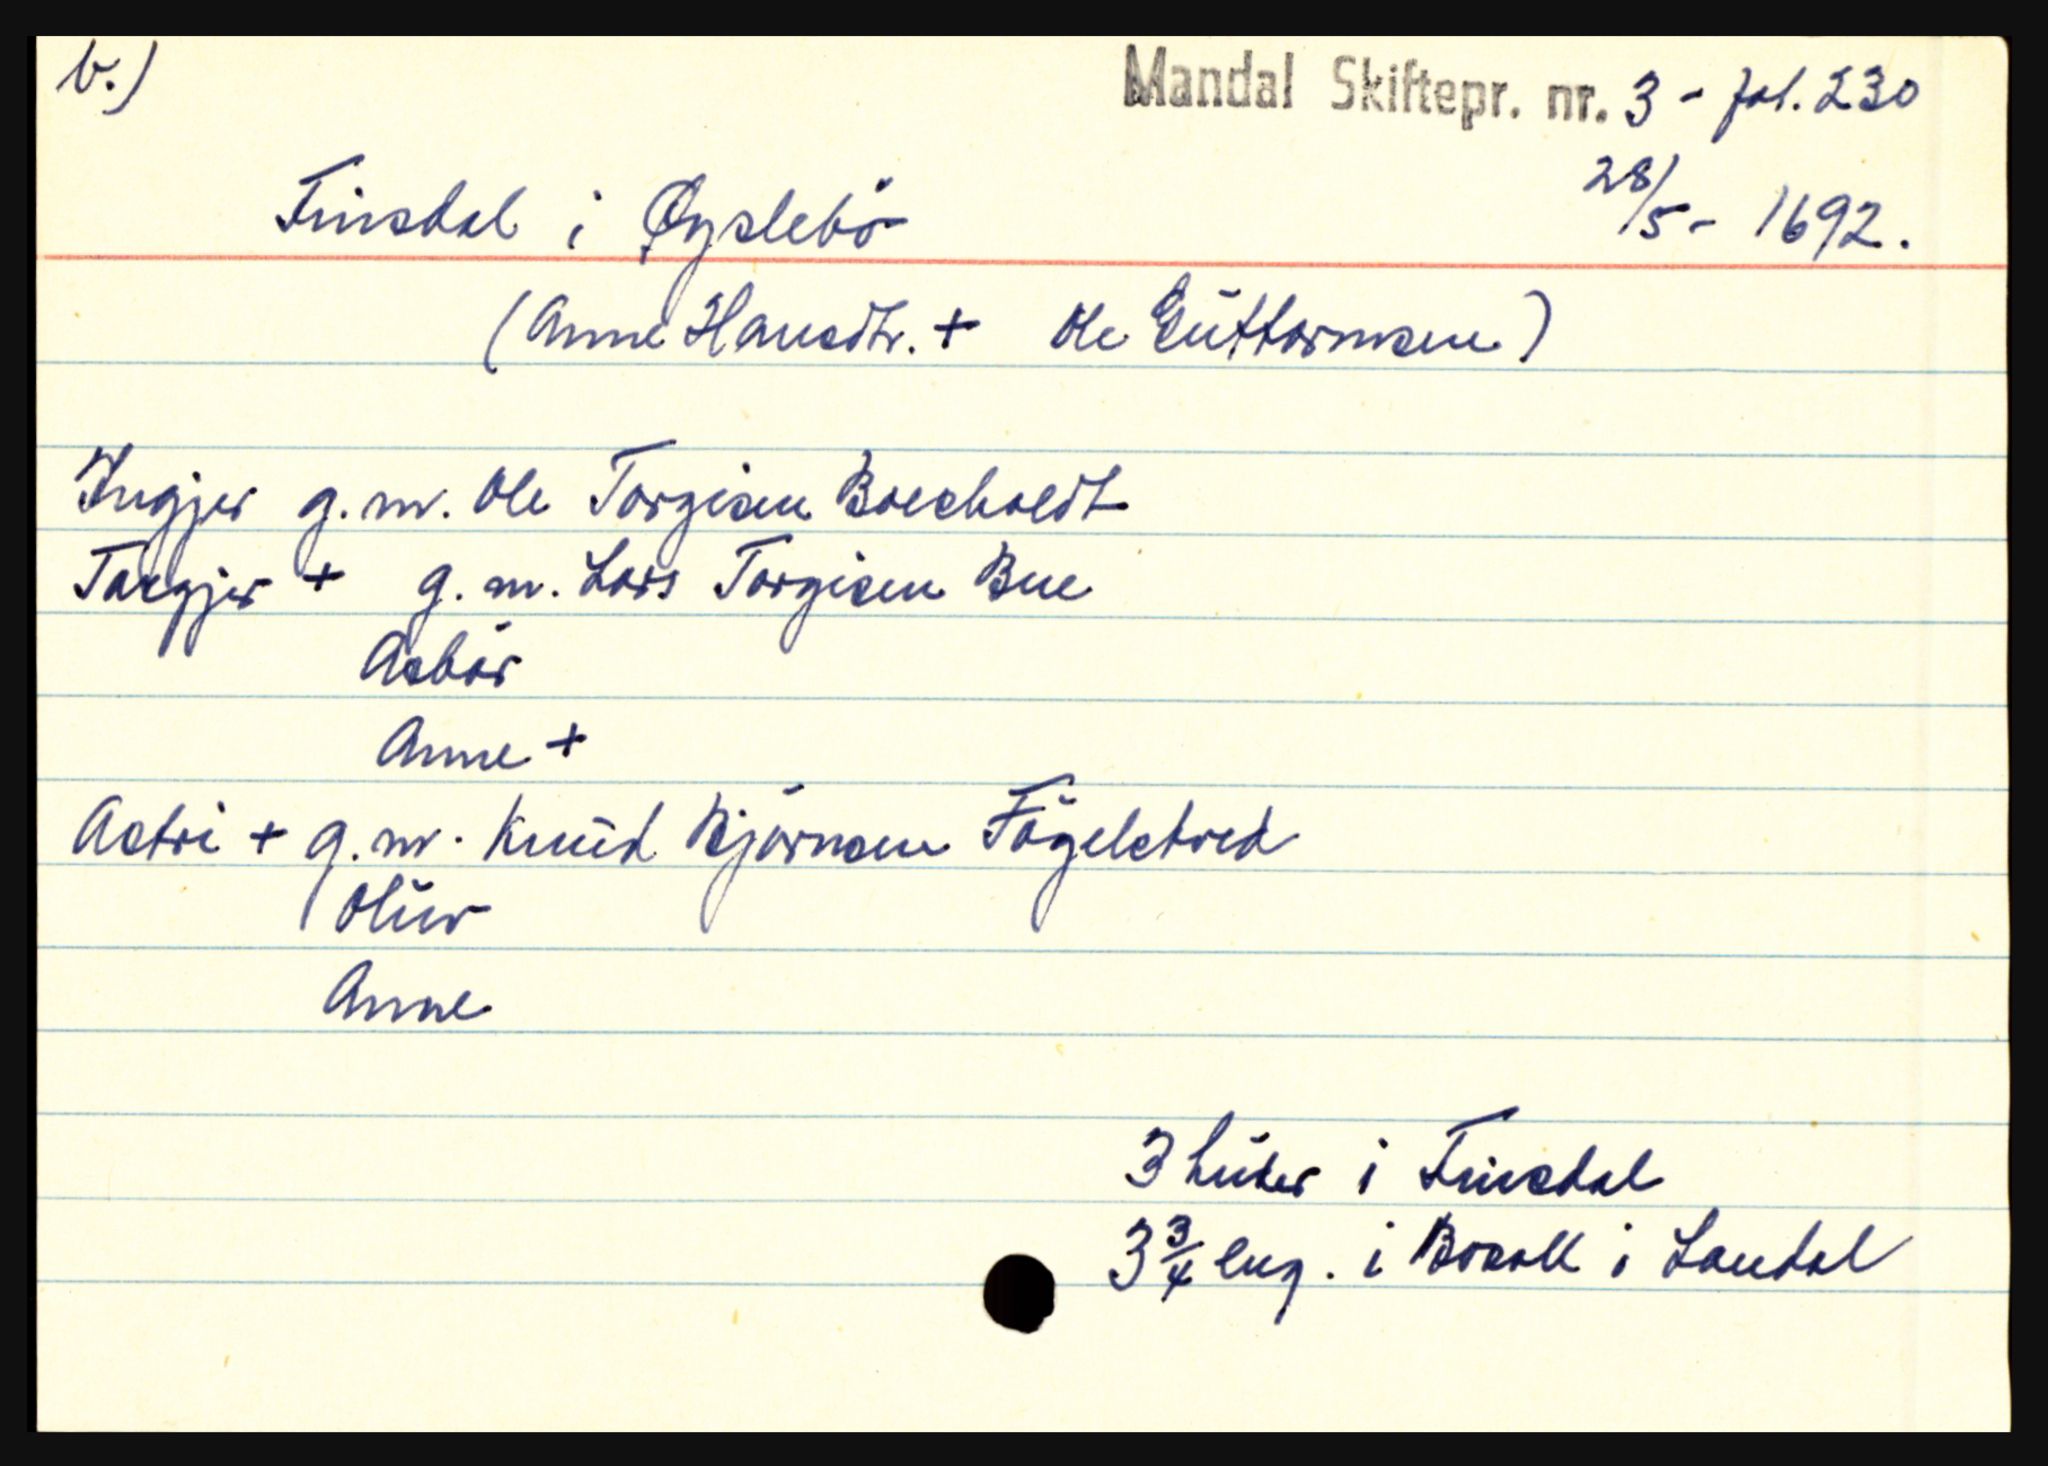 b.)
Mandal Skiftepr. nr. 3 - fol. 230
28/5 - 1692.
Finsdal i Øyslebö
(Anne Hansdtr. + Ole Guttormsen)
Ingjer g.m. Ole Torgisen Boesholdt
Targjer + g.m. Lars Torgisen Bue
Asbör
Anne +
Astri + g.m. Knud Björnsen Fögelstved
Oluv
Anne
3 huder i Finsdal
3 3/4 eng. i Bosall i Laudal